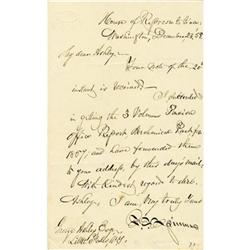 House of Representatives
Washington, December 22, 58
My dear Sir
Your note of the 20th
instant is received. I succeeded
in getting the 3 Volumes Patent
Office Report Mechanical Part for
1857, and have forwarded them
to your address, by this day's mail.
With kindest regard to Mrs.
I am, Very truly Yours
George Esq
Little Falls NY.